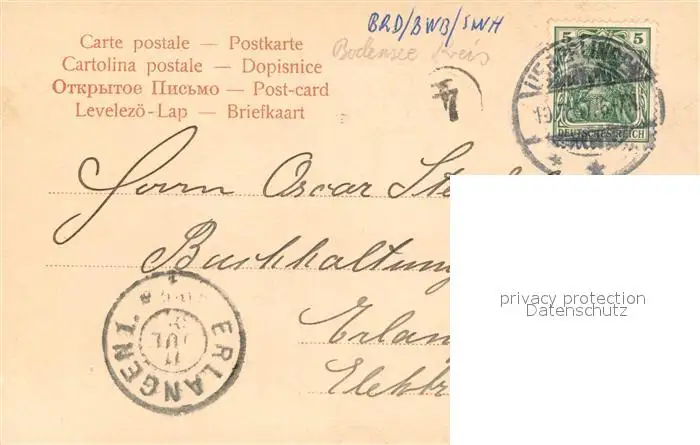 BRD/BWB/SWH
Bodensee Kreis
Carte postale — Postkarte
Cartolina postale — Dopisnice
Открытое Письмо — Post-card
Levelezö-Lap — Briefkaart
4
5 5
DEUTSCHES REICH
Herrn Oscar
Buchhaltung
ERLANGEN 1.
11 JUL
privacy protection
Datenschutz